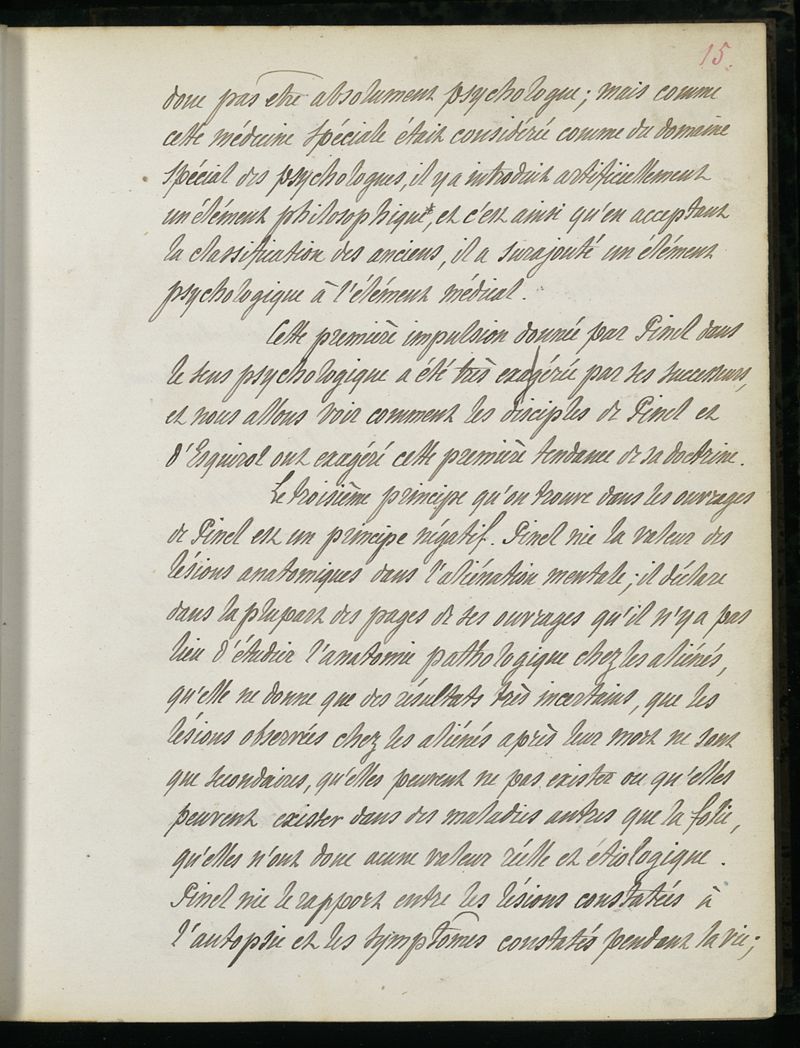 15.
donc pas être absolument psychologue ; mais comme
cette médecine spéciale était considérée comme du domaine
spécial des psychologues, il y a introduit artificiellement
un élément philosophique, et c'est ainsi qu'en acceptant
la classification des anciens, il a surajouté un élément
psychologique à l'élément médical.
Cette première impulsion donnée par Pinel dans
le sens psychologique a été très exagérée par ses successeurs,
et nous allons voir comment les disciples de Pinel et
d'Esquirol ont exagéré cette première tendance de sa doctrine.
Le troisième principe qu'on trouve dans les ouvrages
de Pinel est un principe négatif. Pinel nie la valeur des
lésions anatomiques dans l'aliénation mentale ; il déclare
dans la plupart des pages de ses ouvrages qu'il n'y a pas
lieu d'étudier l'anatomie pathologique chez les aliénés,
qu'elle ne donne que des résultats très incertains, que les
lésions observées chez les aliénés après leur mort ne sont
que secondaires, qu'elles peuvent ne pas exister ou qu'elles
peuvent exister dans des maladies autres que la folie,
qu'elles n'ont donc aucune valeur réelle et étiologique.
Pinel nie le rapport entre les lésions constatées à
l'autopsie et les symptômes constatés pendant la vie ;